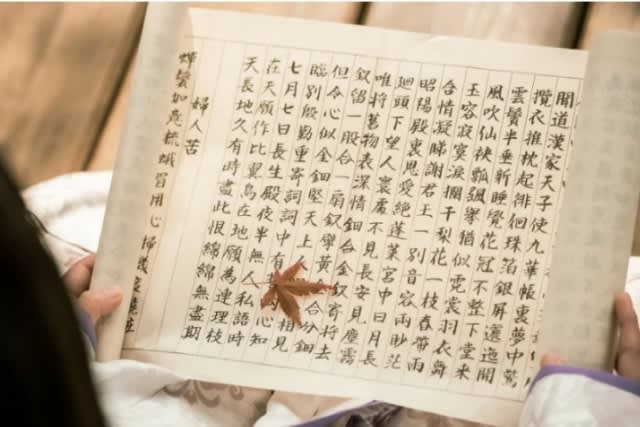 聞道漢家天子使九華帳裏夢中驚
攬衣推枕起徘徊珠箔銀屏邐迤開
雲鬢半垂新睡覺花冠不整下堂來
風吹仙袂飄飄舉猶似霓裳羽衣舞
玉容寂寞淚欄干梨花一枝春帶雨
含情凝睇謝君王一別音容兩眇茫
昭陽殿裏恩愛絕蓬萊宮中日月長
迴頭下望人寰處不見長安見塵霧
唯將舊物表深情鈿合金釵寄將去
釵留一股合一扇釵擘黃金合分鈿
但令心似金鈿堅天上人相見
臨別殷勤重寄詞詞中有心知
七月七日長生殿夜半無人私語時
在天願作比翼鳥在地願為連理枝
天長地久有時盡此恨綿綿無盡期
婦人苦
蟬鬢加意梳蛾眉用心掃幾度曉妝